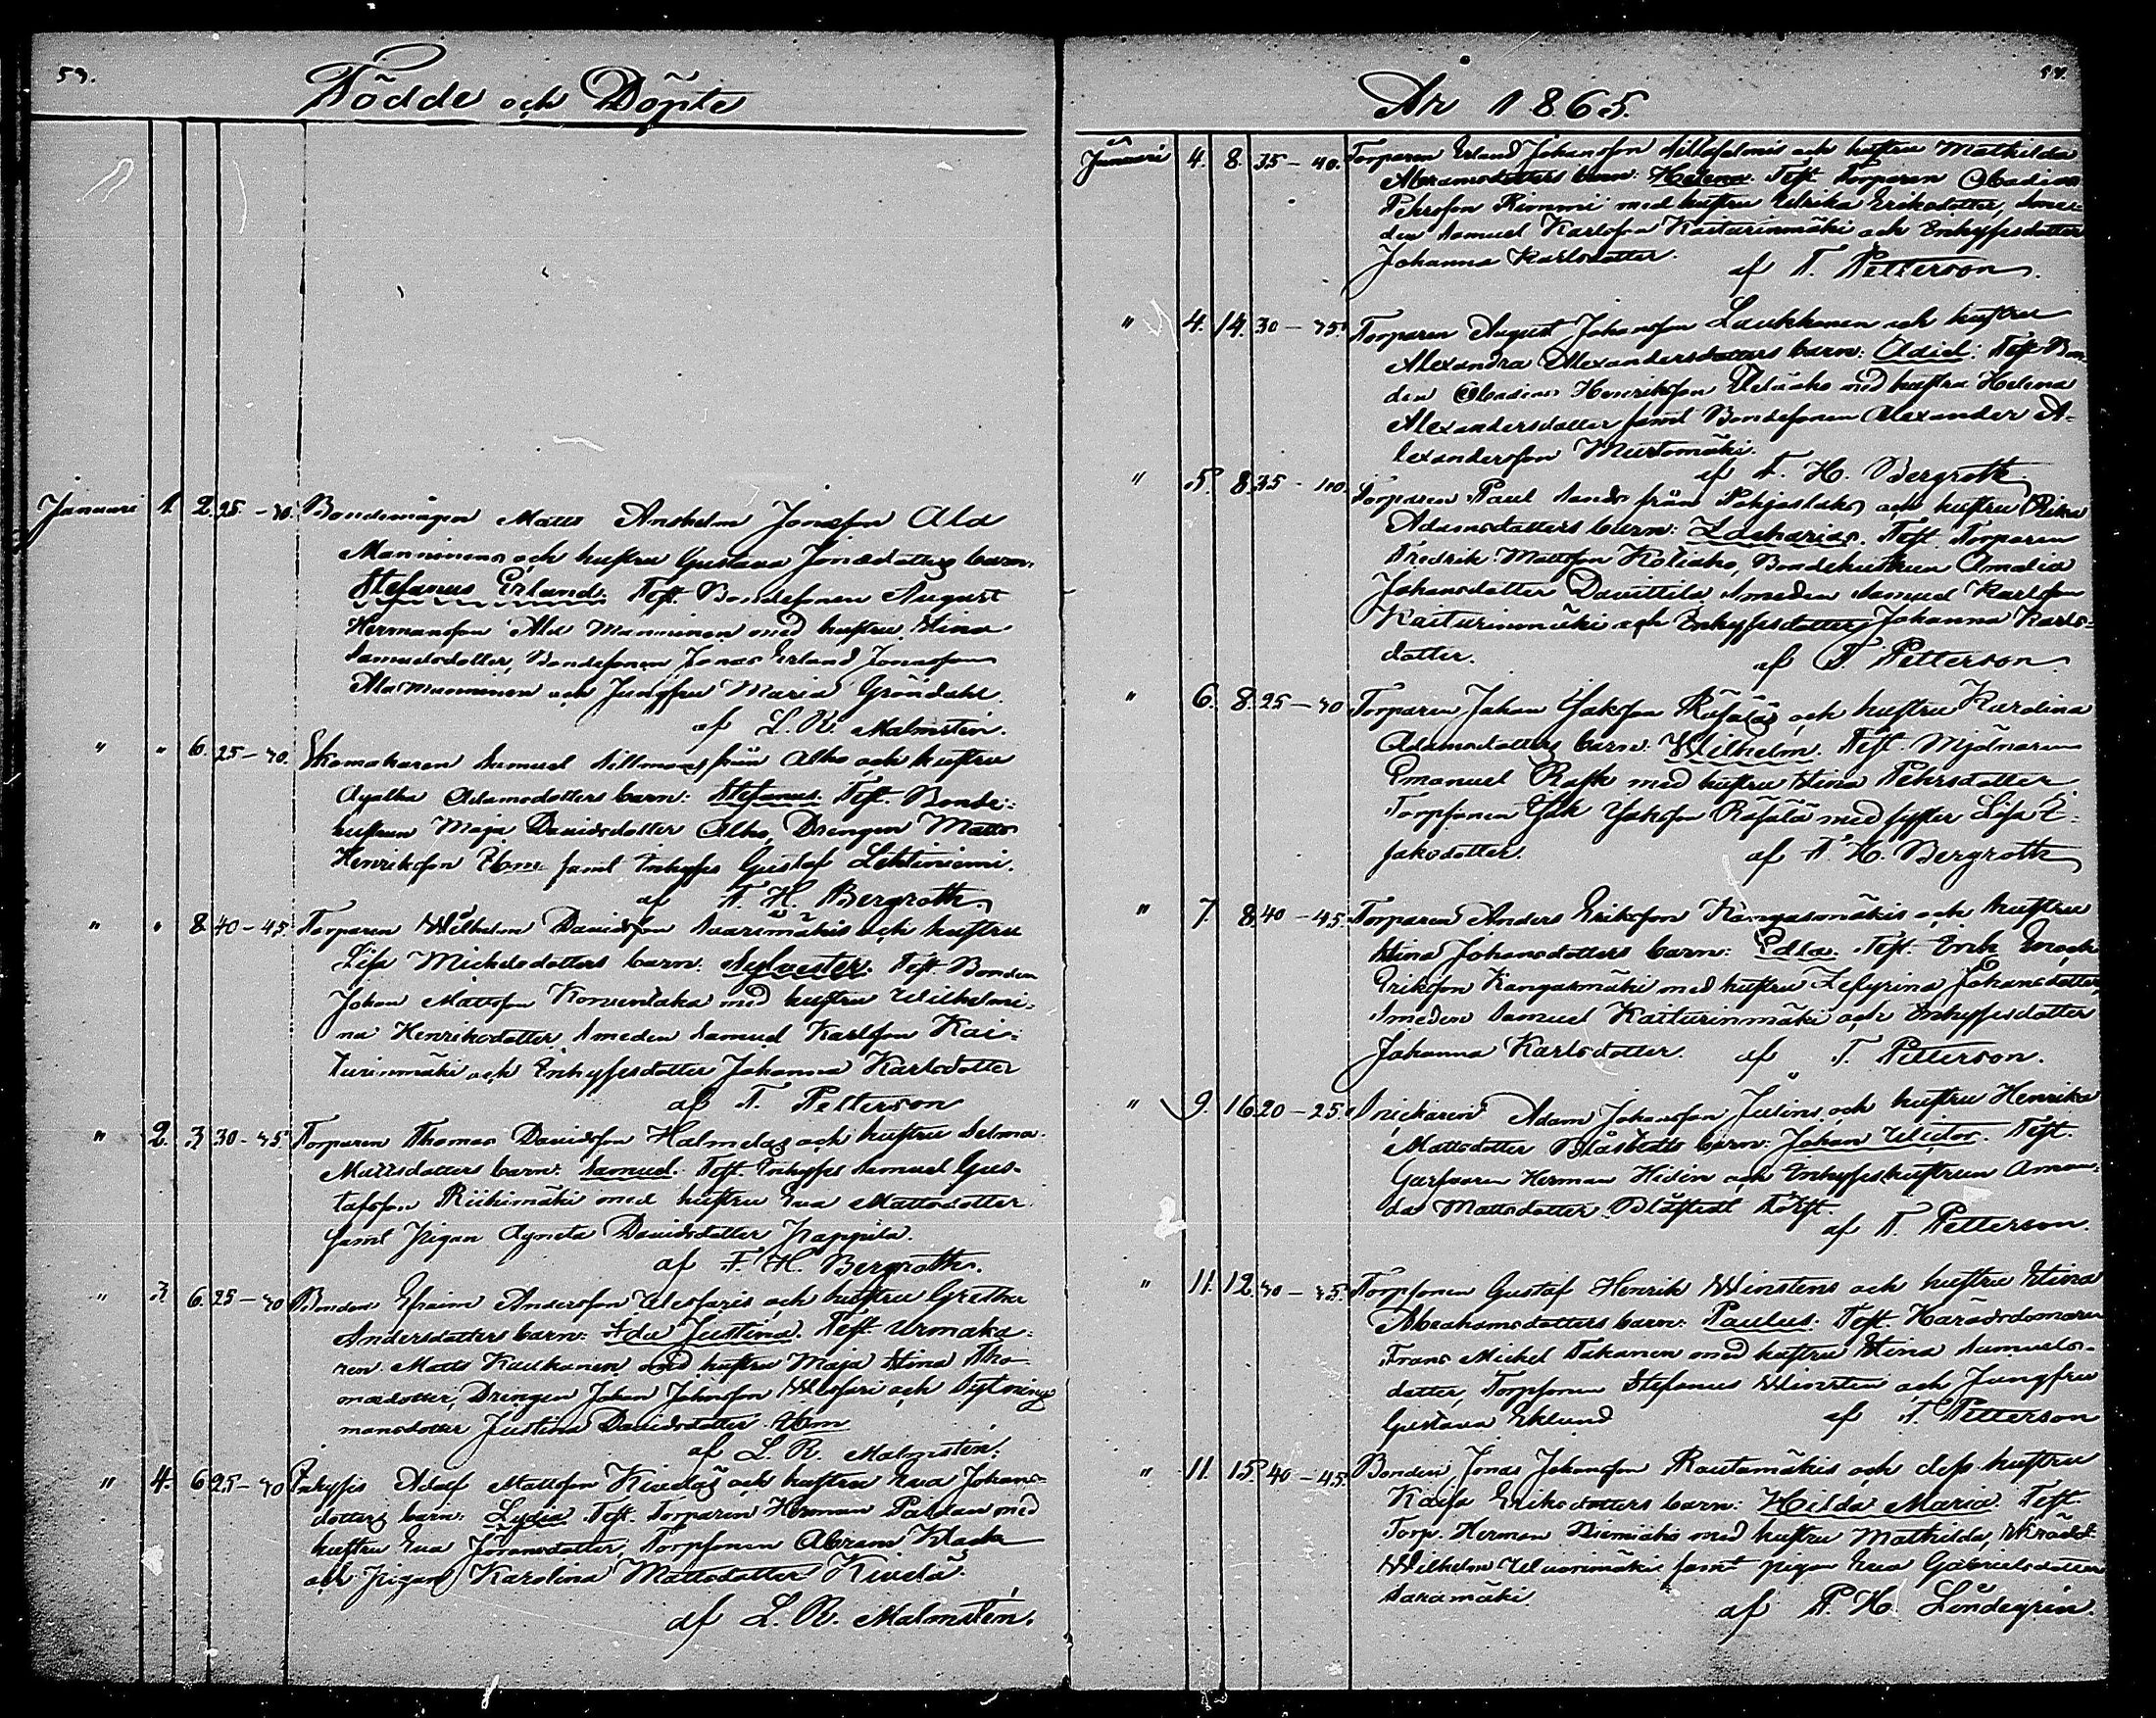 53.
Födde och Döpte
Januari 1. 2. 25-30. Bondemågen Matts Anshelm Jonasson Ala
Manninens och hustru Gustava Jonædotters barn.
Stefanus Erland. Test. Bondesonen August
Hermansson Ala Manninen med hustru Stina
Samuelsdotter, Bondesonen Jonas Erland Jonasson
Ala Manninen och Jungfru Maria Gröndahl.
af L. R. Malmstén.
" " 6. 25-30. Skomakaren Samuel Sillmans från Alho och hustru
Agatha Adamsdotters barn: Stefanus. Test. Bonde-
hustrun Maja Davidsdotter Alho, Drengen Matts
Henriksson samt Inhyses Gustaf Lehtiniemi.
af F. H. Bergroth.
" " 8. 40-45 Torparen Wilhelm Davidsson och hustru
Lisa Mickelsdotters barn: Sylvester. Test. Bonden
Johan Mattsson med hustru Wilhelmi-
na Henriksdotter, Smeden Samuel Karlsson Kai-
turinmäki och Inhysesdotter Johanna Karlsdotter
af T. Petterson
" 2. 3. 30-35 Torparen Thomas Davidsson Halmelas och hustru Selma
Mattsdotters barn: Samuel. Test. Inhyses Samuel Gus-
tafsson Riihimäki med hustru Eva Mattsdotter
samt pigan Agneta Davidsdotter Pappila.
af F. H. Bergroth.
" 3. 6. 25-30 Bonden Efraim Andersson och hustru Gretha
Andersdotters barn: Ida Justina. Test. Urmaka-
ren Matts Kauhanen med hustru Maja Stina Tho-
mædotter, Drengen Johan Johansson och Sytnings
mansdotter Justina Davidsdotter
af L. R. Malmstén.
" 4. 6. 25-30 Inhyses Adolf Mattsson Kiveläs och hustru Eva Johans-
dotters barn: Lydia. Test. Torparen Herman med
hustru Eva Torpsonen Abram
och pigan Karolina Mattsdotter Kivelä.
af L. R. Malmstén.
54.
År 1865.
Januari 4. 8. 35-40. Torparen Erland Johansson och hustru Mathilda
Abramsdotters barn: Helena. Test. Torparen Obadias
Pehrsson med hustru Ulrika Eriksdotter, Sme-
den Samuel Karlsson Kaiturinmäki och Inhysesdotter
Johanna Karlsdotter. af T. Petterson.
" 4. 14. 30-35. Torparen August Johansson Laukkonen och hustru
Alexandra Alexandersdotters barn: Adiel. Test. Bon-
den Obadias Henriksson med hustru Helena
Alexandersdotter samt Bondesonen Alexander A-
lexandersson Murtomäki. af F. H. Bergroth
" 5. 8. 35-40. Torparen Paul Sands från Pohjoslaks och hustru Rika
Adamsdotters barn: Zacharias. Test. Torparen
Fredrik Mattsson Kotiaho, Bondehustrun Amalia
Johansdotter Davittila Smeden Samuel Karlsson
Kaiturinmäki och Inhysesdotter Johanna Karls-
dotter. af T. Petterson
" 6. 8. 25-30 Torparen Johan Isaksson Räfäläs och hustru Karolina
Adamsdotters barn: Wilhelm. Test. Mjölnaren
Emanuel Rask med hustru Stina Pehrsdotter
Torpsonen Isak Isaksson Räfälä med syster Lisa I-
saksdotter. af F. H. Bergroth
" 7. 8. 40-45. Torparen Anders Eriksson Kangasmäkis och hustru
Stina Johansdotters barn: Edla. Test. Inh. Enoch
Eriksson Kangasmäki med hustru Zefyrina Johansdotter,
Smeden Samuel Kaiturinmäki och Inhysesdotter
Johanna Karlsdotter. af T. Petterson.
" 9. 16. 20-25. Snickaren Adam Johansson Julins och hustru Henrika
Mattsdotter Blåstedts barn: Johan Victor. Test.
Garfvaren Herman Hidén och Inhyseshustrun Aman-
da Mattsdotter Blåstedt
af T. Petterson.
" 11. 12. 30-35. Torpsonen Gustaf Henrik Winstens och hustru Stina
Abrahamsdotters barn: Paulus. Test. Häradsdomaren
Frans Michel Takanen med hustru Stina Samuels-
dotter, Torpsonen Stefanus Winsten och Jungfru
Gustava Eklund af T. Petterson
" 11. 15. 40-45. Bonden Jonas Johansson Rautamäkis och dess hustru
Kaisa Eriksdotters barn: Hilda Maria. Test.
Torp. Herman Niemiaho med hustru Mathilda, Skrädd.
Wilhelm Wuorimäki samt pigan Eva Gabrielsdotter
Saramäki. af P. H. Lindegrén.